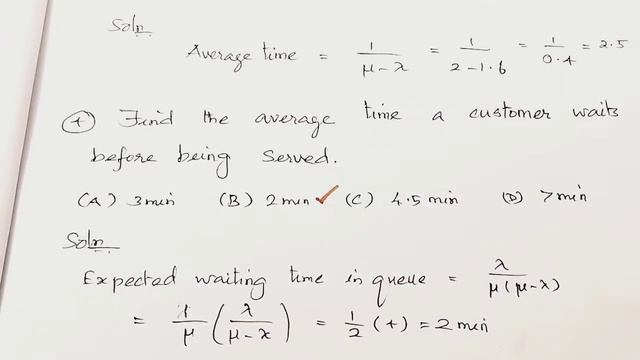 Soln
Average time = 1/(μ-λ) = 1/(2-1.6) = 1/0.4 = 2.5
(4) Find the average time a customer waits
before being served.
(A) 3min (B) 2min ✓ (C) 4.5 min (D) 7min
Soln
Expected waiting time in queue = λ/(μ(μ-λ))
= 1/μ (λ/(μ-λ)) = 1/2 (4) = 2 min